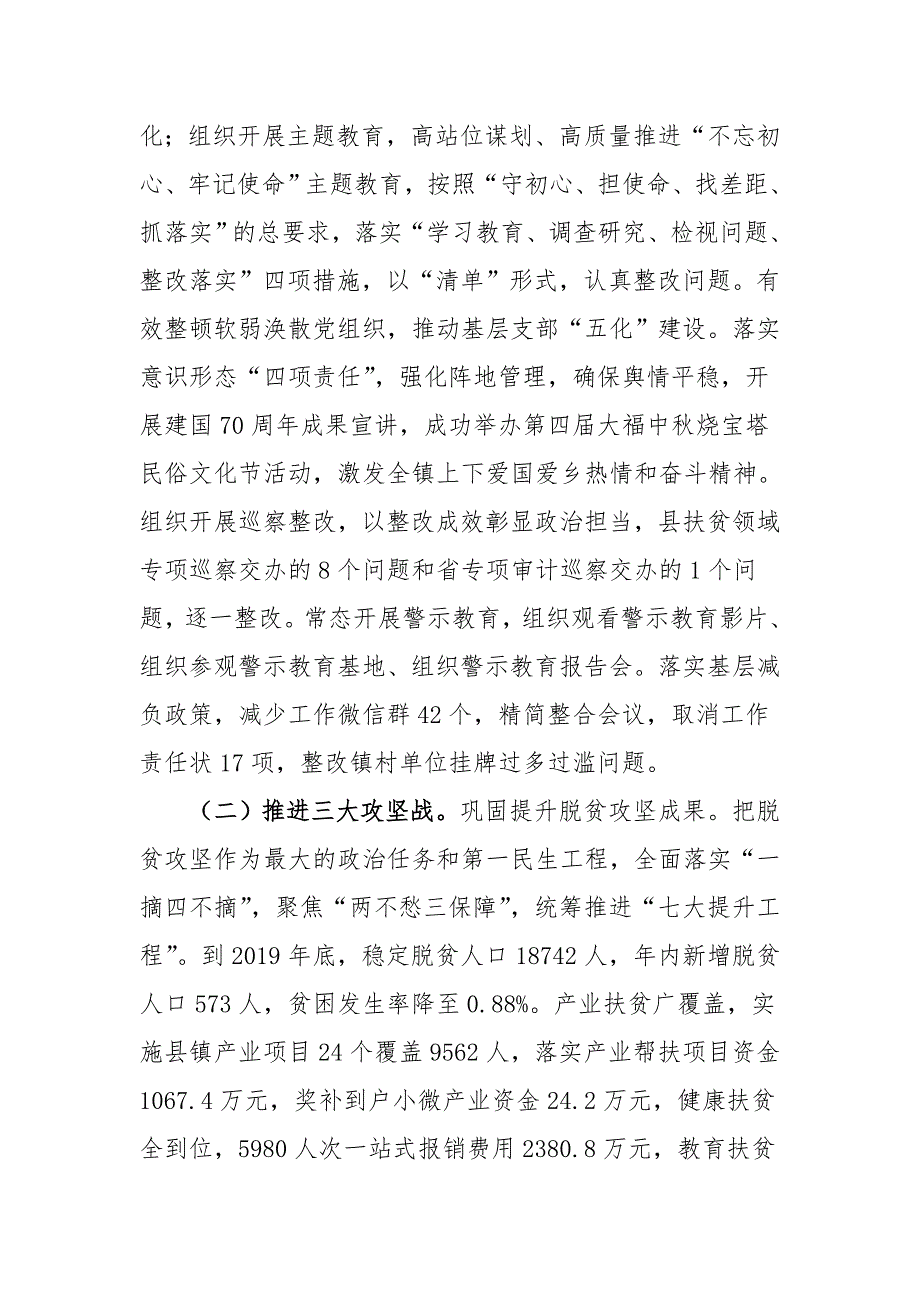 化；组织开展主题教育，高站位谋划、高质量推进“不忘初
心、牢记使命”主题教育，按照“守初心、担使命、找差距、
抓落实”的总要求，落实“学习教育、调查研究、检视问题、
整改落实”四项措施，以“清单”形式，认真整改问题。有
效整顿软弱涣散党组织，推动基层支部“五化”建设。落实
意识形态“四项责任”，强化阵地管理，确保舆情平稳，开
展建国 70 周年成果宣讲，成功举办第四届大福中秋烧宝塔
民俗文化节活动，激发全镇上下爱国爱乡热情和奋斗精神。
组织开展巡察整改，以整改成效彰显政治担当，县扶贫领域
专项巡察交办的 8 个问题和省专项审计巡察交办的 1 个问
题，逐一整改。常态开展警示教育，组织观看警示教育影片、
组织参观警示教育基地、组织警示教育报告会。落实基层减
负政策，减少工作微信群 42 个，精简整合会议，取消工作
责任状 17 项，整改镇村单位挂牌过多过滥问题。
（二）推进三大攻坚战。巩固提升脱贫攻坚成果。把脱
贫攻坚作为最大的政治任务和第一民生工程，全面落实“一
摘四不摘”，聚焦“两不愁三保障”，统筹推进“七大提升工
程”。到 2019 年底，稳定脱贫人口 18742 人，年内新增脱贫
人口 573 人，贫困发生率降至 0.88%。产业扶贫广覆盖，实
施县镇产业项目 24 个覆盖 9562 人，落实产业帮扶项目资金
1067.4 万元，奖补到户小微产业资金 24.2 万元，健康扶贫
全到位，5980 人次一站式报销费用 2380.8 万元，教育扶贫